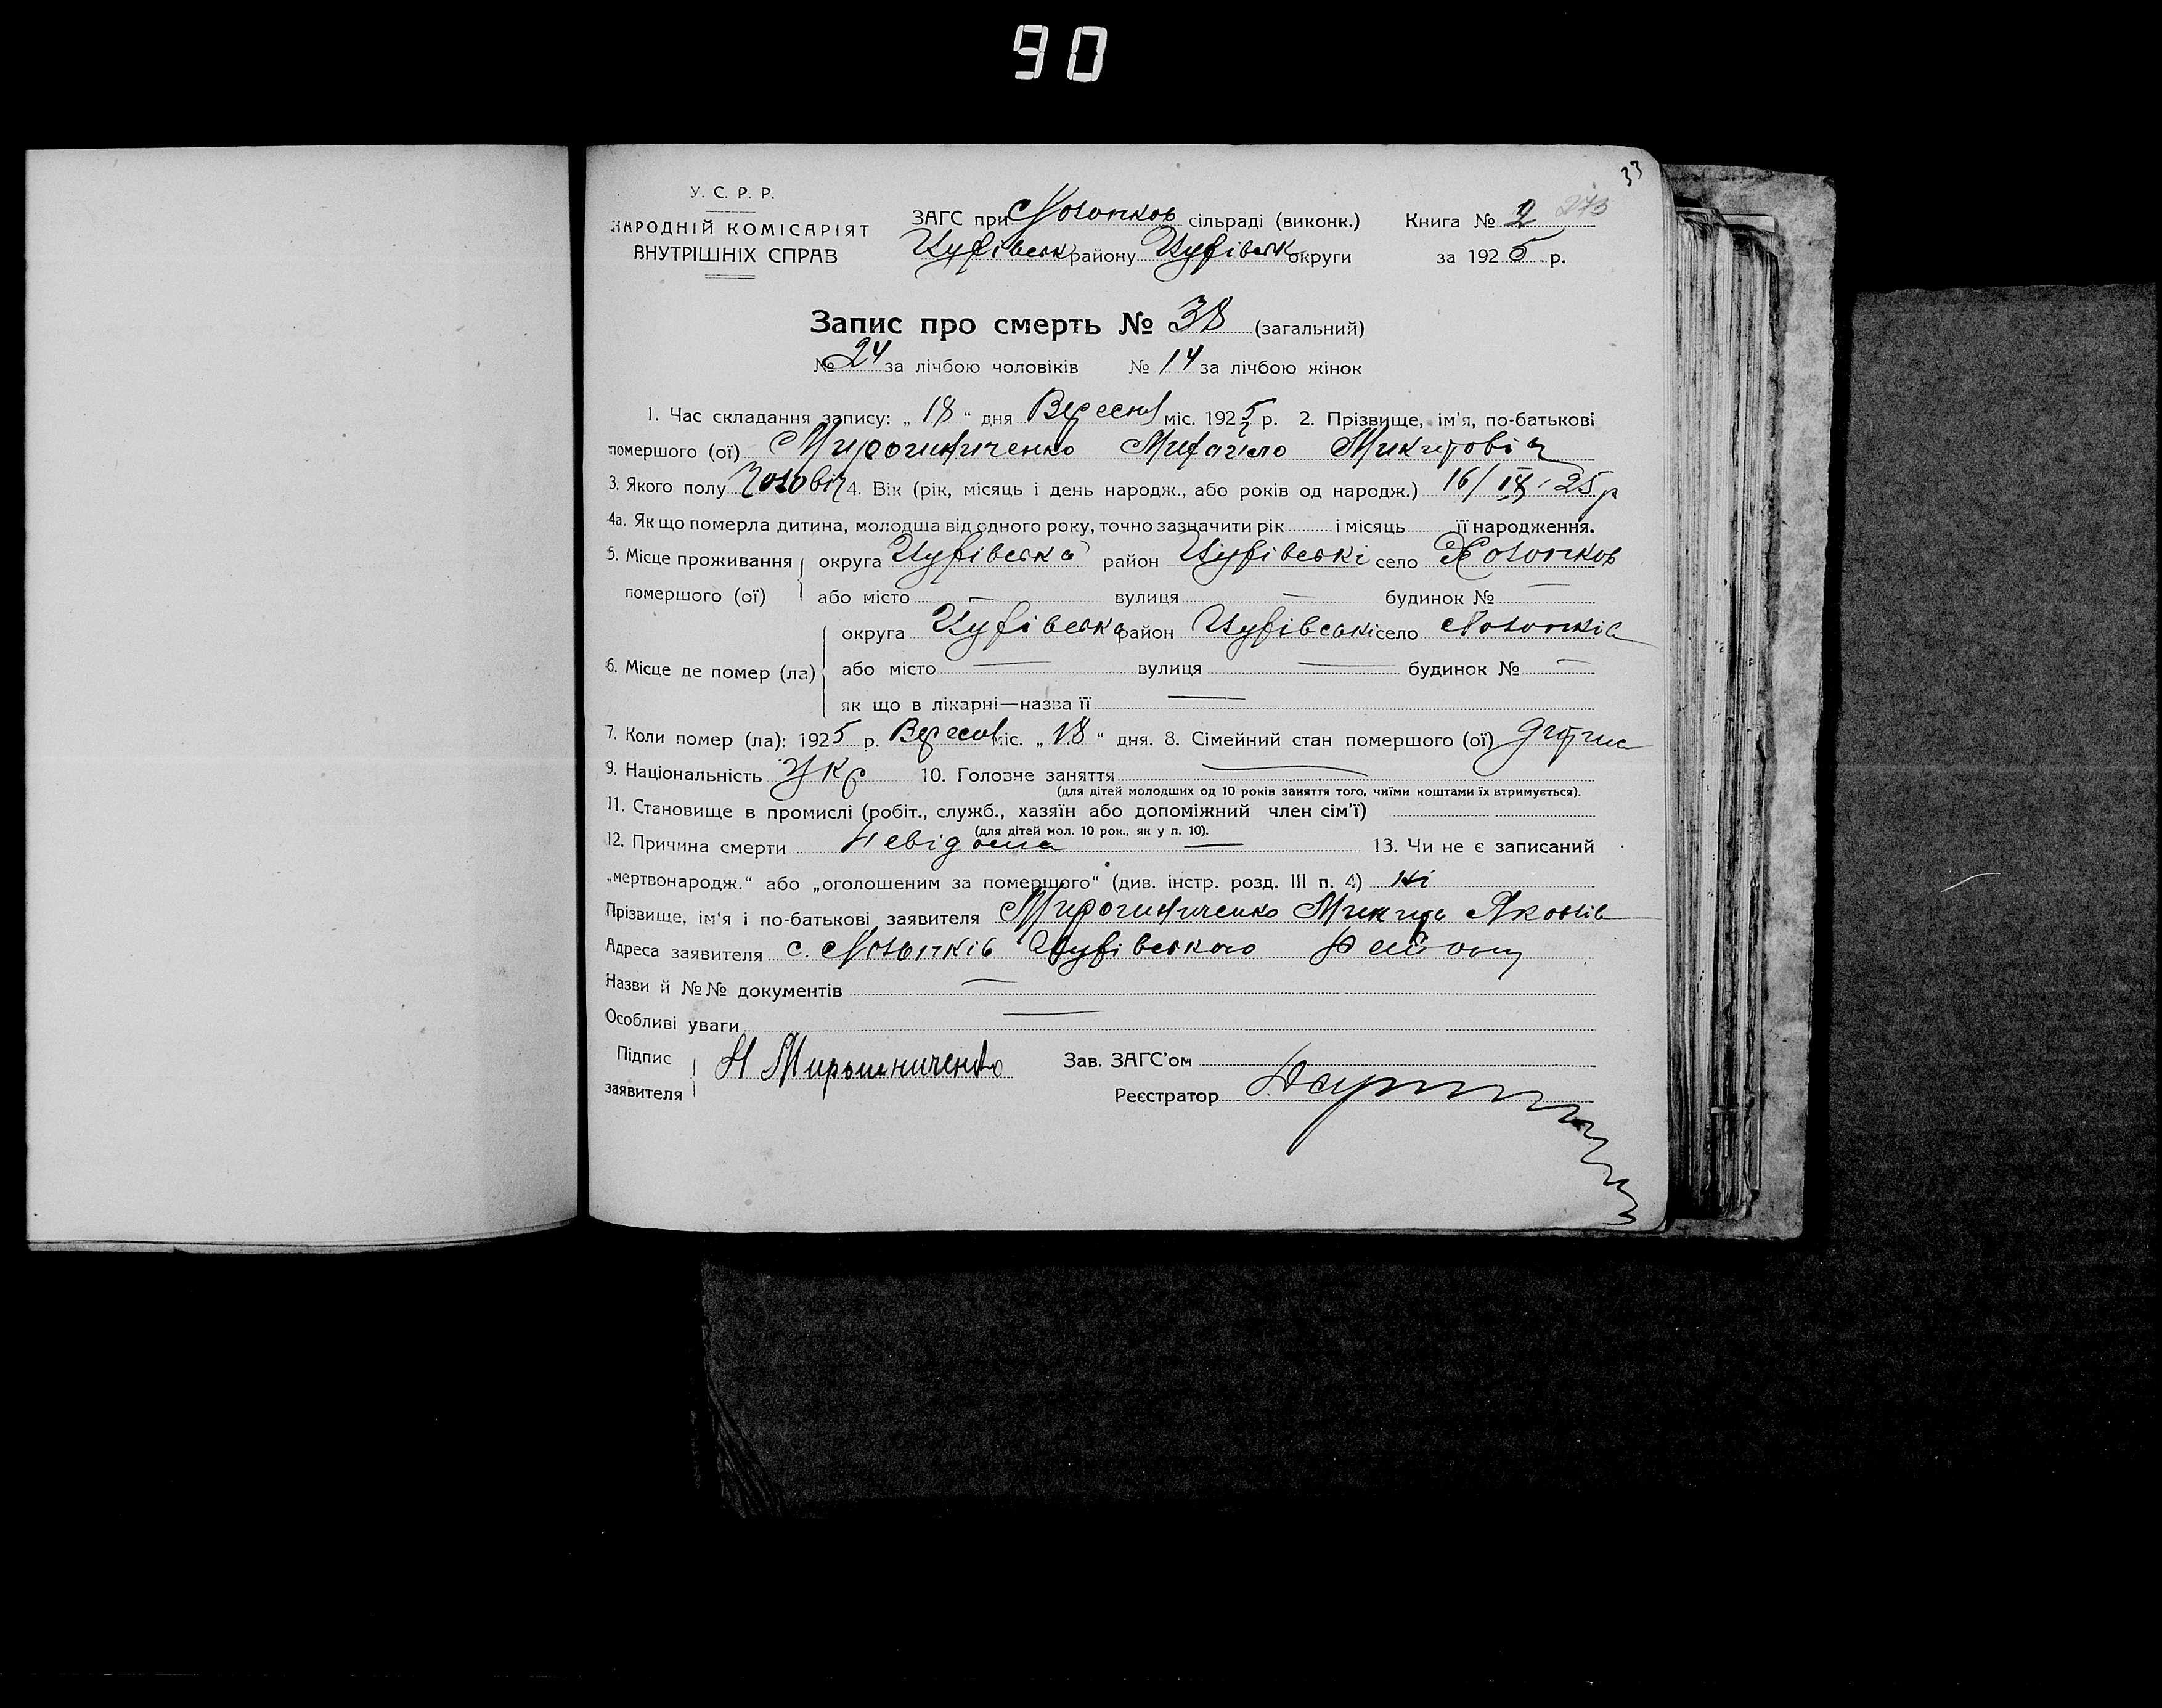 90
33
У. С. Р. Р.
НАРОДНІЙ КОМІСАРІЯТ
ВНУТРІШНІХ СПРАВ
ЗАГС при сільраді (виконк.) Книга № 2 273
району округи за 1925 р.
Запис про смерть № 38 (загальний)
№ 24 за лічбою чоловіків № 14 за лічбою жінок
1. Час складання запису: „ 18 “ дня Вересня міс. 1925 р. 2. Прізвище, ім'я, по-батькові
помершого (ої) Мирошниченко Михайло Микитовіч
3. Якого полу Чоловіч 4. Вік (рік, місяць і день народж., або років од народж.) 16/IX 25 р
4а. Як що померла дитина, молодша від одного року, точно зазначити рік і місяць її народження.
5. Місце проживання округа район село
помершого (ої) або місто — вулиця — будинок № —
округа район село
6. Місце де помер (ла) або місто — вулиця — будинок № —
як що в лікарні—назва її —
7. Коли помер (ла): 1925 р. Вересня міс. „ 18 “ дня. 8. Сімейний стан помершого (ої)
9. Національність Укр 10. Головне заняття —
(для дітей молодших од 10 років заняття того, чиїми коштами їх втримується).
11. Становище в промислі (робіт., служб., хазяїн або допоміжний член сім'ї)
(для дітей мол. 10 рок., як у п. 10).
12. Причина смерти Невідома — 13. Чи не є записаний
„мертвонародж.“ або „оголошеним за помершого“ (див. інстр. розд. III п. 4) Ні
Прізвище, ім'я і по-батькові заявителя Мирошниченко Микита Яковлів
Адреса заявителя с. Району
Назви й №№ документів —
Особливі уваги —
Підпис
заявителя Н Мирошниченко
Зав. ЗАГС'ом
Реєстратор